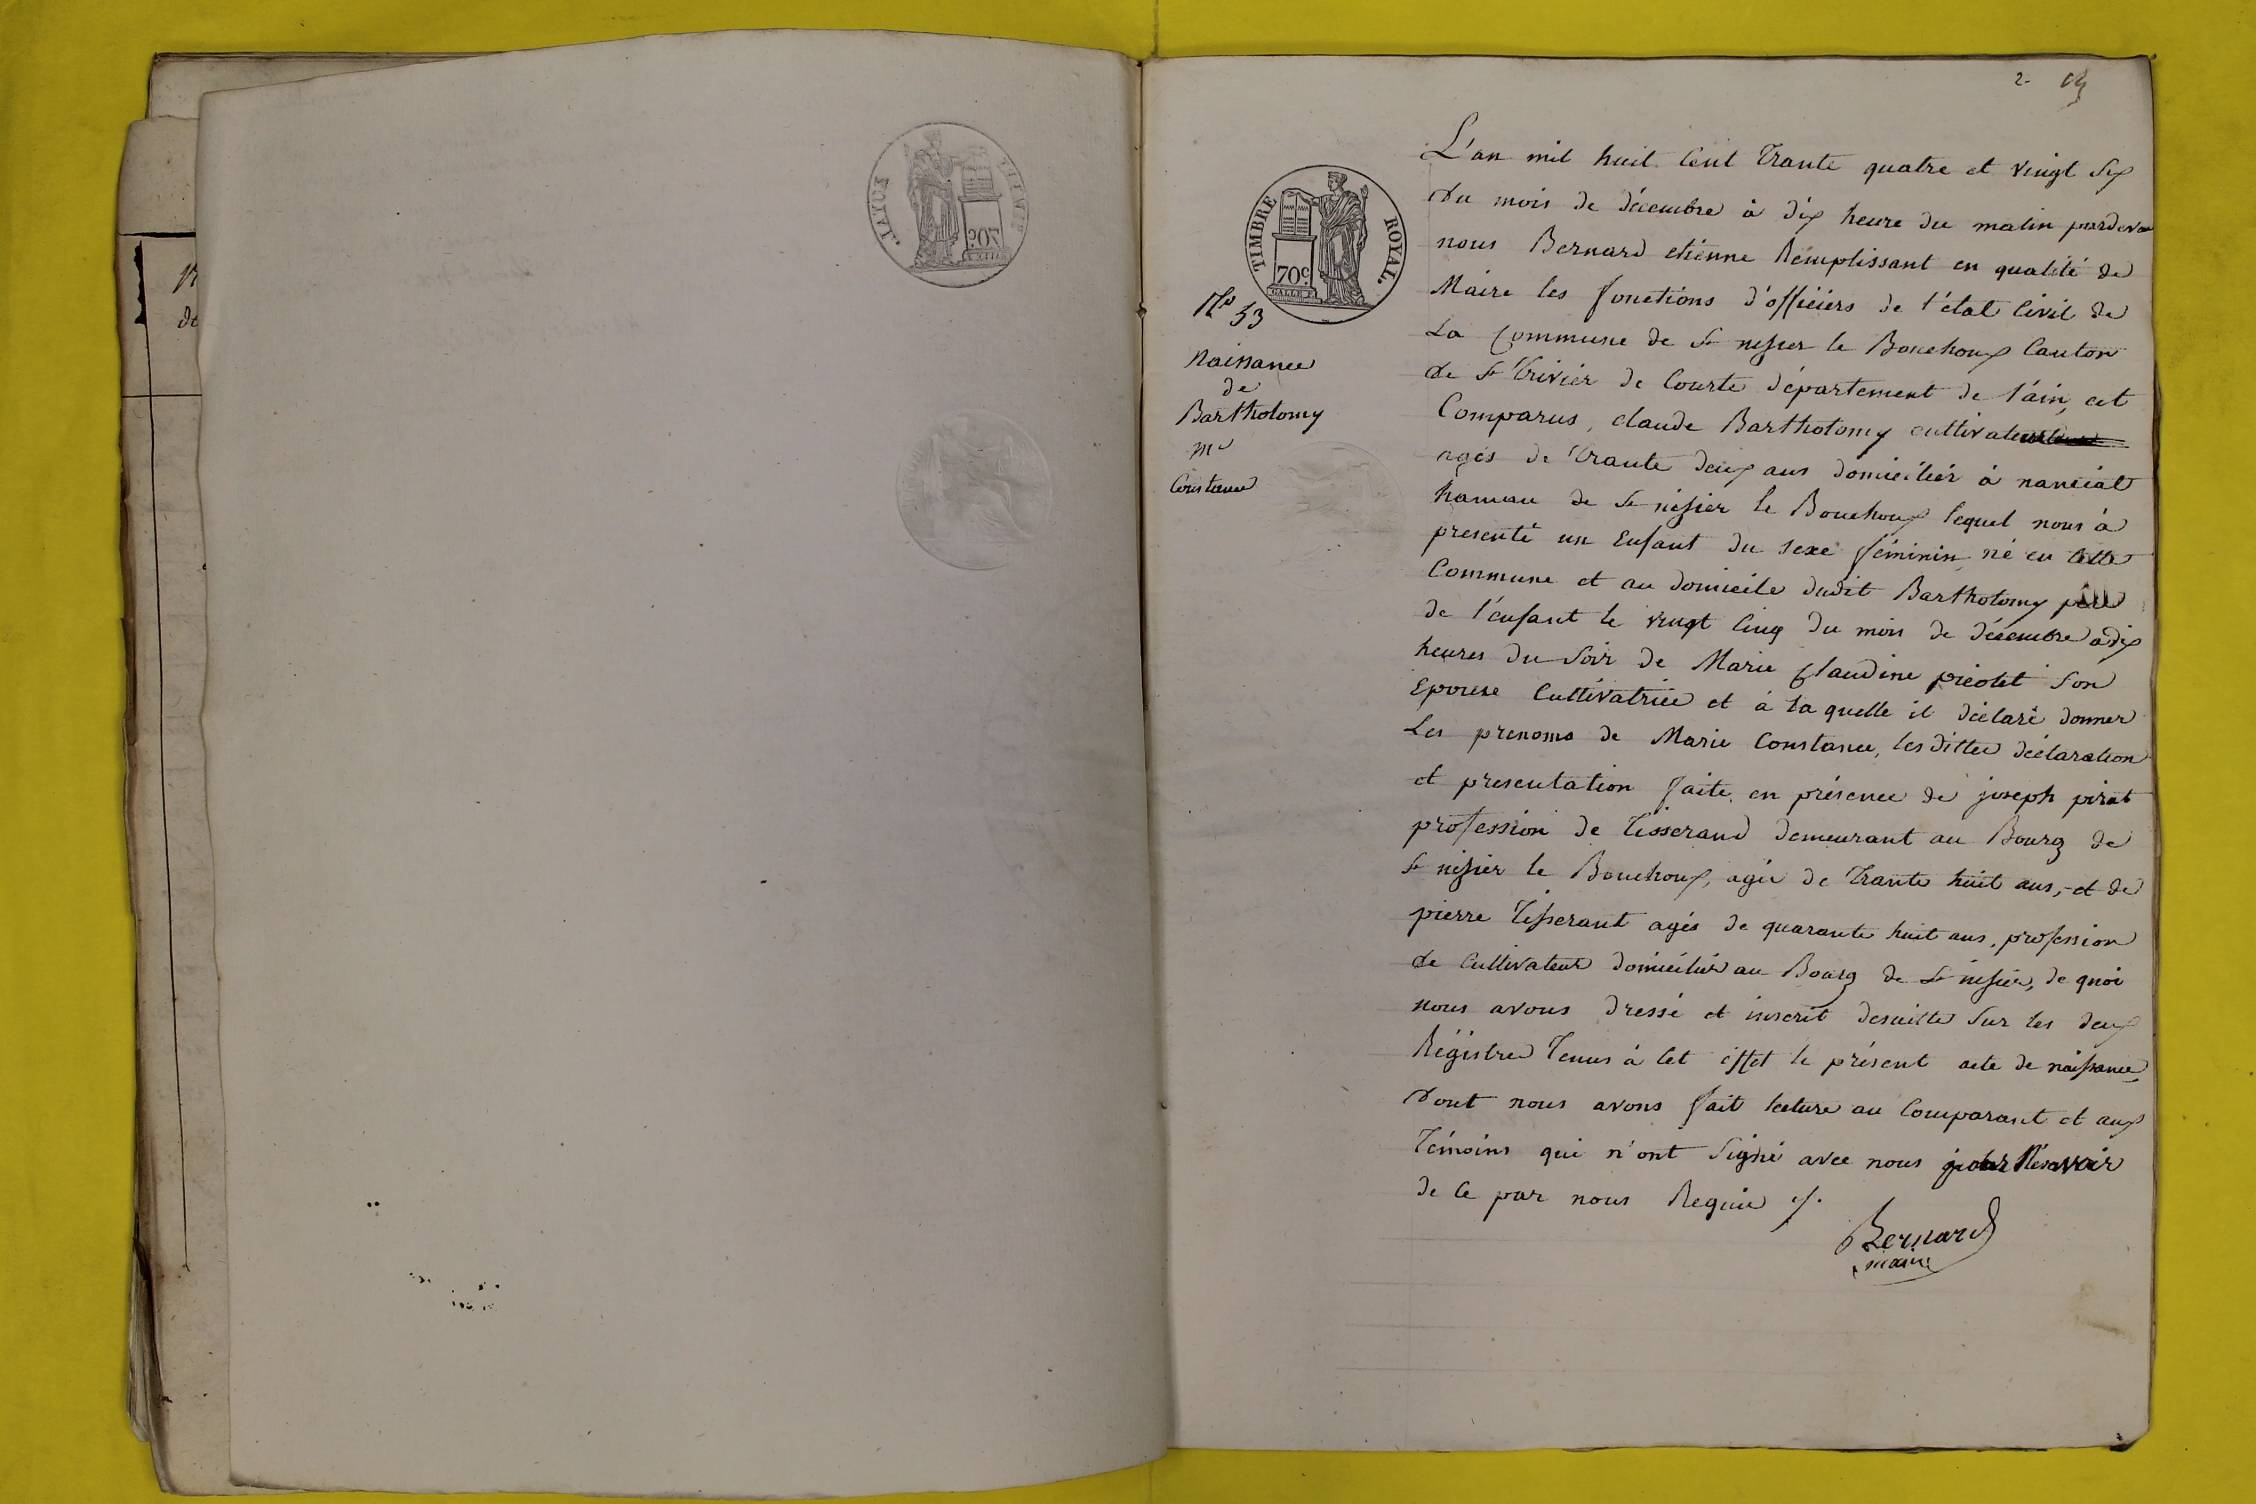 de
2
TIMBRE ROYAL.
70c.
No 53
Naissance
de
Bartholomy
me
Constance
L'an mil huit Cent Trante quatre et vingt six
du mois de décembre à dix heure du matin pardevan
nous Bernard etienne Remplissant en qualité de
Maire les fonctions d'officiers de l'état Civil de
La Commune de St nisier le Bouchoux Canton
de St Trivier de Courte département de l'ain, est
Comparus, claude Bartholomy cultivateur
agés de Trante deux ans domicilier à nancial
hameau de St nisier le Bouchoux lequel nous à
presenté un Enfant du sexe féminin né en cette
Commune et au domicile dudit Bartholomy père
de l'enfant le vingt Cinq du mois de décembre a dix
heures du soir de Marie Claudine preolet son
Epouse Cultivatrice et à la quelle il déclaré donner
Les prenoms de Marie Constance, les dittes déclaration
et presentation faite en présence de joseph pirat
profession de Tisserand demeurant au Bourg de
St nisier le Bouchoux, agée de Trante huit ans, et de
pierre Tisserant agés de quarante huit ans, profession
de Cultivateur domicilier au Bourg de St nisier, de quoi
nous avons dressé et inscrit desuitte sur les deux
Régistres Tenus à Cet effet le présent acte de naissance,
dont nous avons fait lecture au Comparant et aux
Témoins qui n'ont signé avec nous
de Ce par nous Requis
Bernard
maire